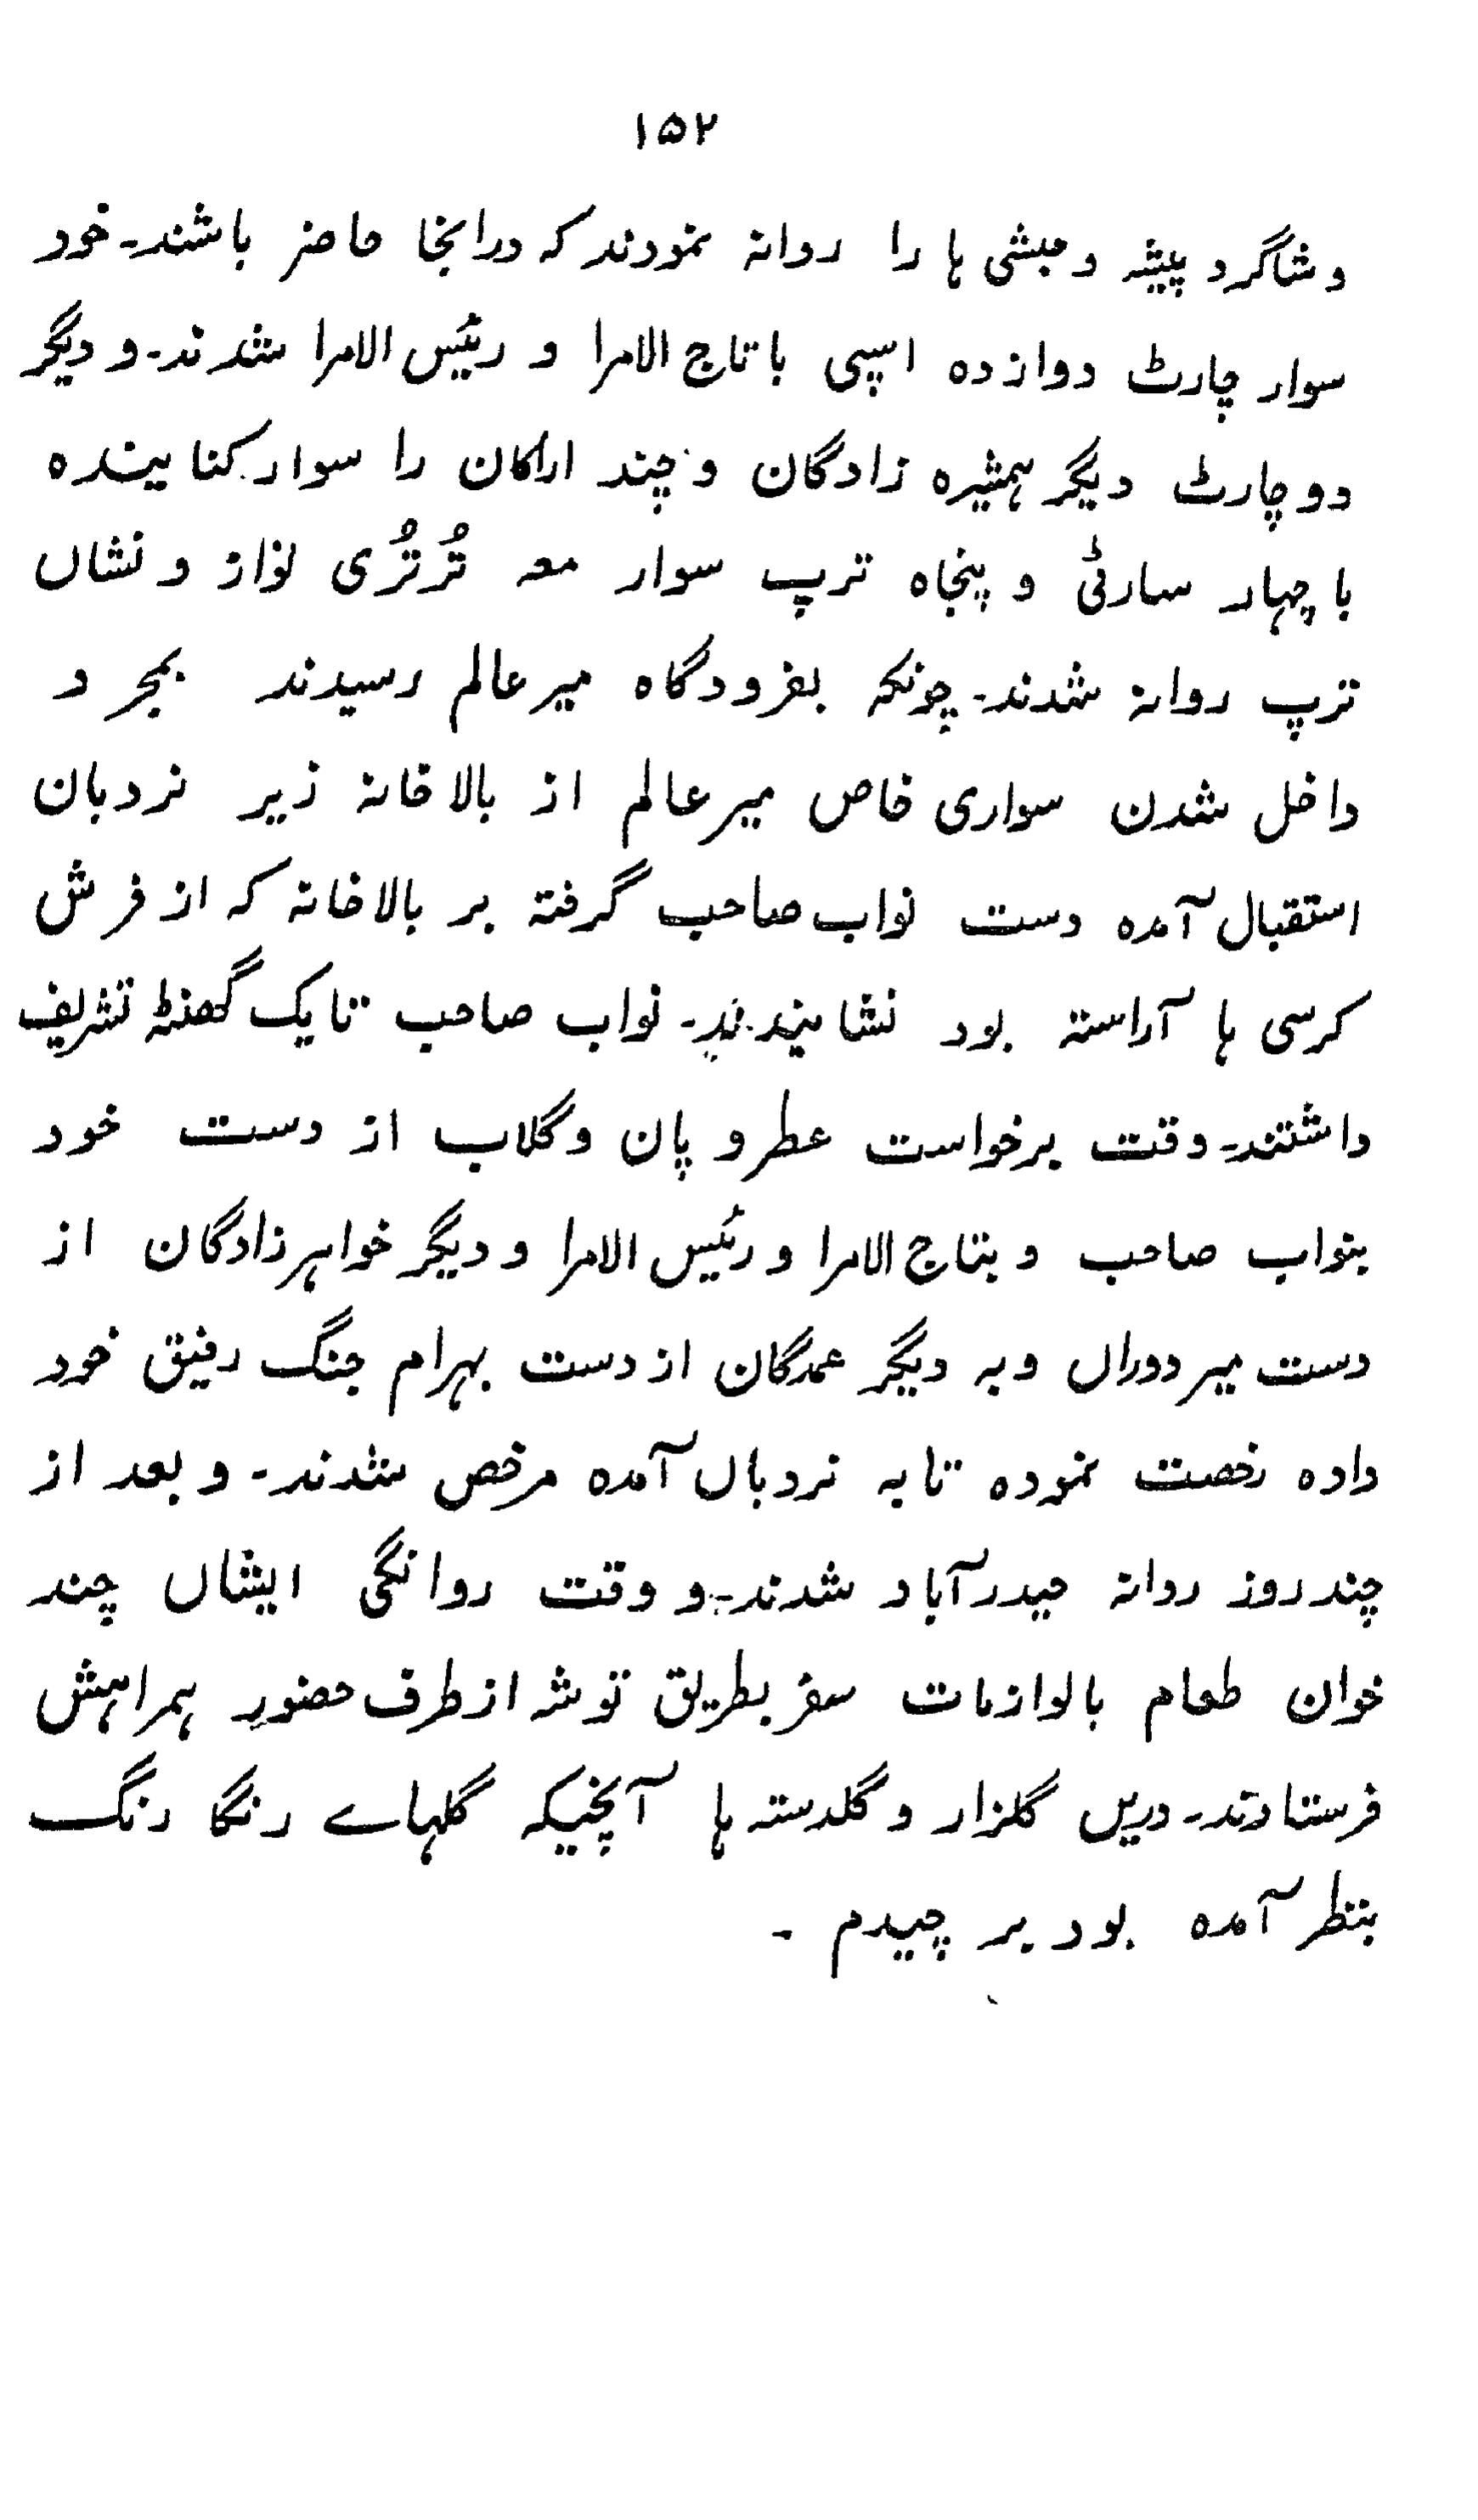 ۱۵۲
و شاگرد پیشہ و حبشی ہا را روانہ نمودند کہ درانجا حاضر باشند۔ خود
سوار چارٹ دوازدہ اسپی با تاج الامرا و رئیس الامرا شدند۔ و دیگر
دو چارٹ دیگر ہمشیرہ زادگان و چند اراکان را سوار کنایندہ
با چہار سارٹی و پنجاہ ترپ سوار معہ تُرتُری نواز و نشاں
ترپ روانہ شدند۔ چونکہ بفرودگاہ میر عالم رسیدند بمجرد
داخل شدن سواری خاص میر عالم از بالا خانہ زیر نردبان
استقبال آمدہ دست نواب صاحب گرفتہ بر بالا خانہ کہ از فرش
کرسی ہا آراستہ بود نشانیدند۔ نواب صاحب تا یک گھنٹہ تشریف
داشتند۔ وقت برخواست عطر و پان و گلاب از دست خود
بنواب صاحب و بتاج الامرا و رئیس الامرا و دیگر خواہرزادگان از
دست میر دوراں و بہ دیگر عمدگان از دست بہرام جنگ رفیق خود
دادہ رخصت نمودہ تا بہ نردباں آمدہ مرخص شدند۔ و بعد از
چند روز روانہ حیدرآباد شدند۔ و وقت روانگی ایشاں چند
خوان طعام با لوازمات سفر بطریق توشہ از طرف حضور ہمراہش
فرستادند۔ دریں گلزار و گلدستہ ہا آنچیکہ گلہاے رنگا رنگ
بنظر آمدہ بود بر چیدم ۔